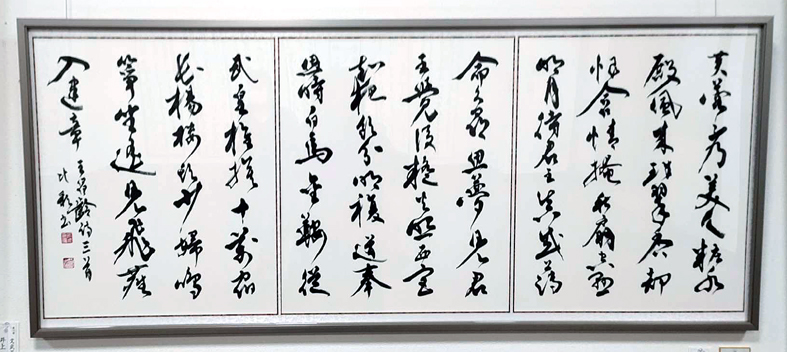 芙蓉不及美人粧水
殿風来珠翠香却
恨含情掩秋扇空懸
明月待君王真成薄
命久尋思夢見君
王覺後疑火照西宮
知夜飲分明複道奉
恩時白馬金鞍從
武皇旌旗十萬宿
長楊樓頭少婦鳴
箏坐遥見飛塵
入建章
王昌齡詩三首
書
井上